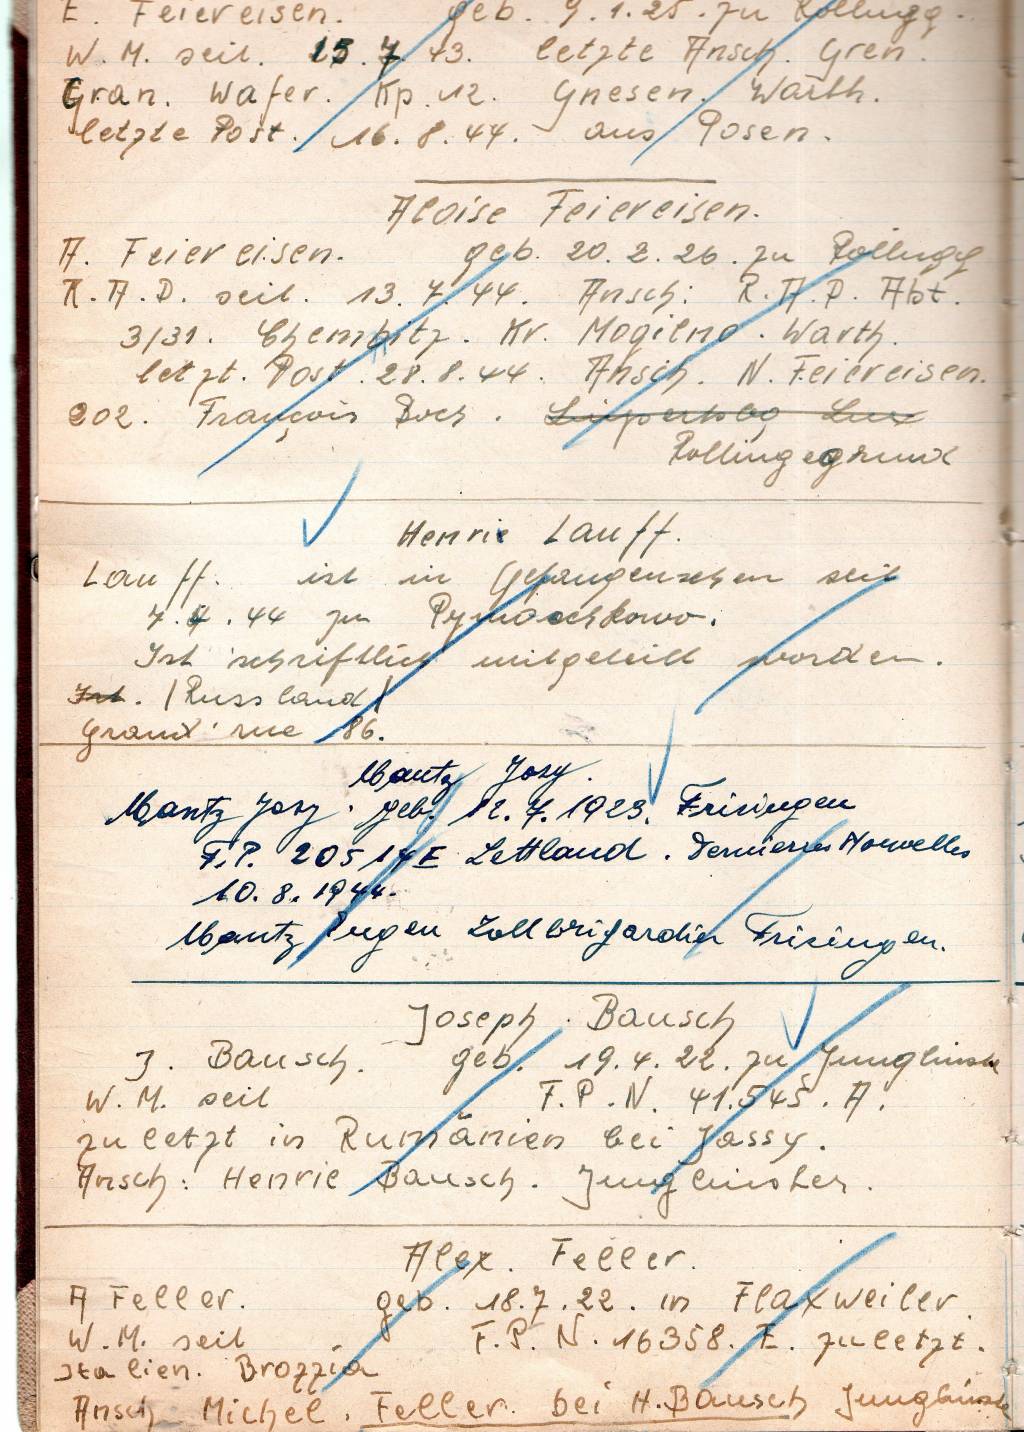 E. Feiereisen. geb. 9.1.25. zu Rollingg.
W.M. seit. 15.7.43. letzte Ansch. Gren.
Gran. Wafer. Kp. 12. Gnesen. Warth.
letzte Post. 16.8.44. aus Posen.
Aloise Feiereisen.
A. Feiereisen. geb. 20.2.26. zu Rollingg
R.A.D. seit. 13.7.44. Ansch: R.A.D. Abt.
3/31. Kr. Mogilno. Warth.
letzt. Post. 28.8.44. Ansch. N. Feiereisen.
202. François Boch. Lux
Rollingegrund
Henrie Lauff.
Lauff. ist in Gefangenschen seit
7.4.44 zu
Ist schriftlich mitgeteilt worden.
Ist. (Russland)
Grand' rue 86.
Mantz Josy.
Mantz Josy. geb. 12.7.1923. Frisingen
F.P. 20514E Lettland. Dernieres Nouvelles
10.8.1944.
Mantz Eugen Zollbrigardier Frisingen.
Joseph. Bausch
J. Bausch. geb. 19.4.22. zu
W.M. seit F.P.N. 41.545.A.
zuletzt in Rumänien bei Jassy.
Ansch: Henrie Bausch. Junglinster.
Alex. Feller.
A Feller. geb. 18.7.22. in Flaxweiler
W.M. seit F.P.N. 16358. E. zuletzt.
Italien. Brozzia
Ansch Michel. Feller. bei H. Bausch